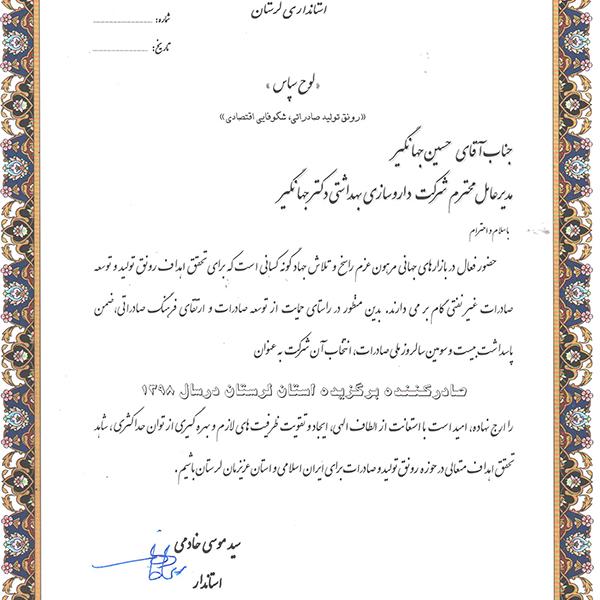 استانداری لرستان
شماره:
تاریخ:
«لوح سپاس»
«رونق تولید صادراتی، شکوفایی اقتصادی»
جناب آقای حسین جهانگیر
مدیرعامل محترم شرکت داروسازی بهداشتی دکتر جهانگیر
باسلام و احترام
حضور فعال در بازارهای جهانی مرهون عزم راسخ و تلاش جهادگونه کسانی است که برای تحقق اهداف رونق تولید و توسعه
صادرات غیر نفتی گام بر می دارند. بدین منظور در راستای حمایت از توسعه صادرات و ارتقای فرهنگ صادراتی، ضمن
پاسداشت بیست و سومین سالروز ملی صادرات، انتخاب آن شرکت به عنوان
صادرکننده برگزیده استان لرستان درسال ۱۳۹۸
را ارج نهاده، امید است با استعانت از الطاف الهی، ایجاد و تقویت ظرفیت های لازم و بهره گیری از توان حداکثری، شاهد
تحقق اهداف متعالی در حوزه رونق تولید و صادرات برای ایران اسلامی و استان عزیزمان لرستان باشیم.
سید موسی خادمی
استاندار